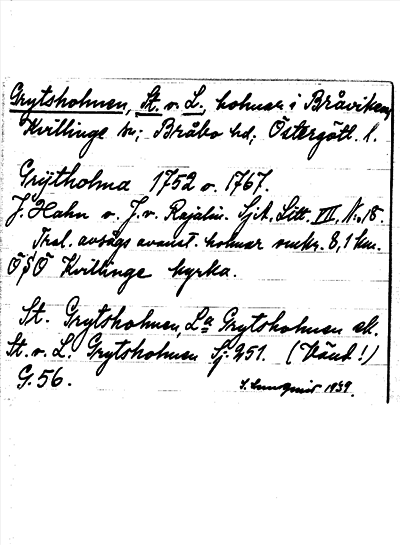 Grytsholmen, St. o. L., holmar i Bråviken,
Kvillinge sn; Bråbo hd; Östergötl. l.
Grijtholma 1752 o. 1767.
J. Hahn o. J. v. Rajalin. Sjk. Litt. VII, No. 18.
Tral. avsågs ovanst. holmar omkr. 8,1 km.
ÖSÖ Kvillinge kyrka.
St. Grytsholmen, La Grytsholmen ek.
St. o. L. Grytsholmen Sj. 251. (Vänd!)
G. 56.
1939.